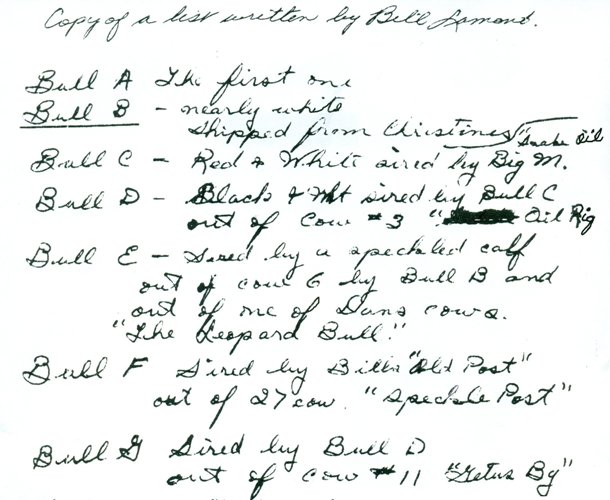 Copy of a list written by Bill Lamond.
Bull A The first one
Bull B - nearly white
shipped from Christines "Snake Oil
Bull C - Red & White sired by Big M.
Bull D - Black & Wht sired by Bull C
out of Cow #3 " Oil Rig
Bull E - Sired by a speckled calf
out of cow 6 by Bull B and
out of one of Dans cows.
"The Leopard Bull."
Bull F Sired by Bills "Old Post"
out of 27 cow. "Speckle Post"
Bull G Sired by Bull D
out of cow #11 "Getus By"